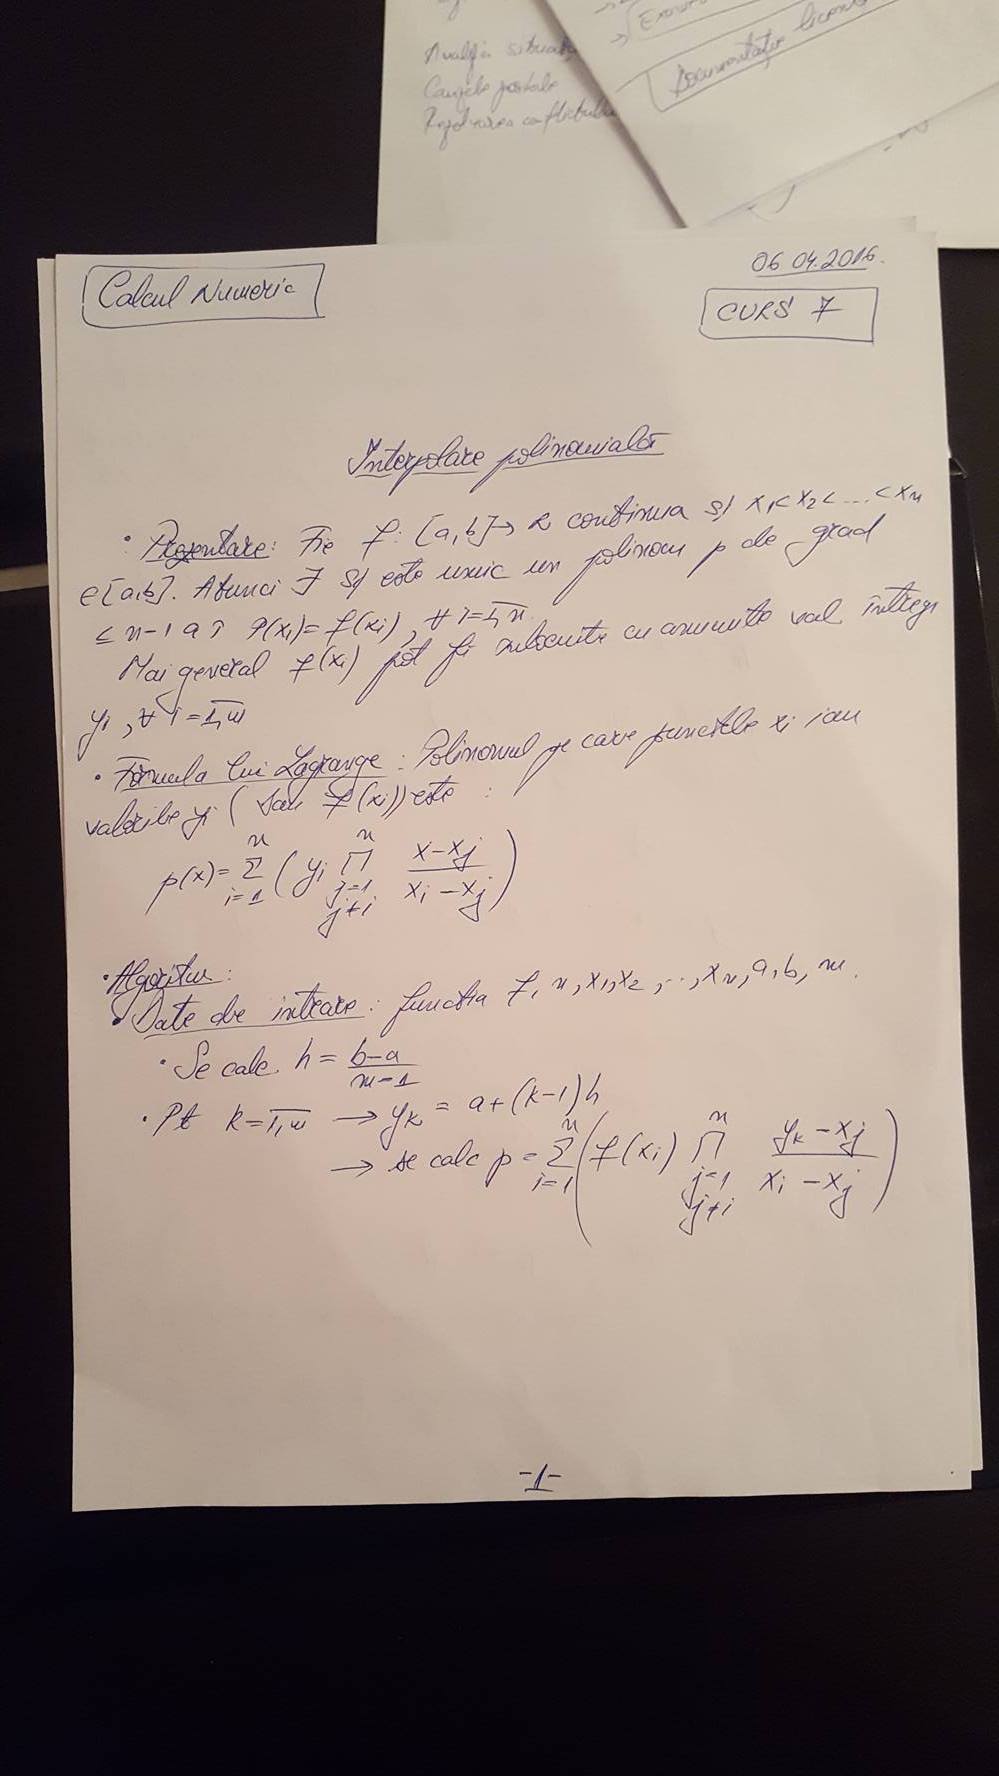 Analiza
Cauzele
Rezolvarea conflictului
Documentație
06.04.2016.
Calcul Numeric
CURS 7
Interpolare polinomială
• Prezentare: Fie f: [a,b] → R continua și x₁< x₂ < ... < xₙ
∈[a,b]. Atunci ∃ și este unic un polinom p de grad
≤ n-1 aî P(xi) = f(xi), ∀ i=1,n.
Mai general f(xi) pot fi inlocuite cu anumite val întregi
yi, ∀ i=1,n
• Formula lui Lagrange: Polinomul pe care punctele xi iau
valorile yi (sau f(xi)) este :
p(x) = Σ_{i=1}^{n} ( yi Π_{j=1, j≠i}^{n} (x-xj)/(xi-xj) )
• Algoritm:
• Date de intrare: functia f, n, x₁, x₂, ..., xₙ, a, b, m.
• Se calc. h = (b-a)/(m-1)
• Pt k=1,m → yk = a+(k-1)h
→ se calc p = Σ_{i=1}^{n} ( f(xi) Π_{j=1, j≠i}^{n} (yk-xj)/(xi-xj) )
-1-